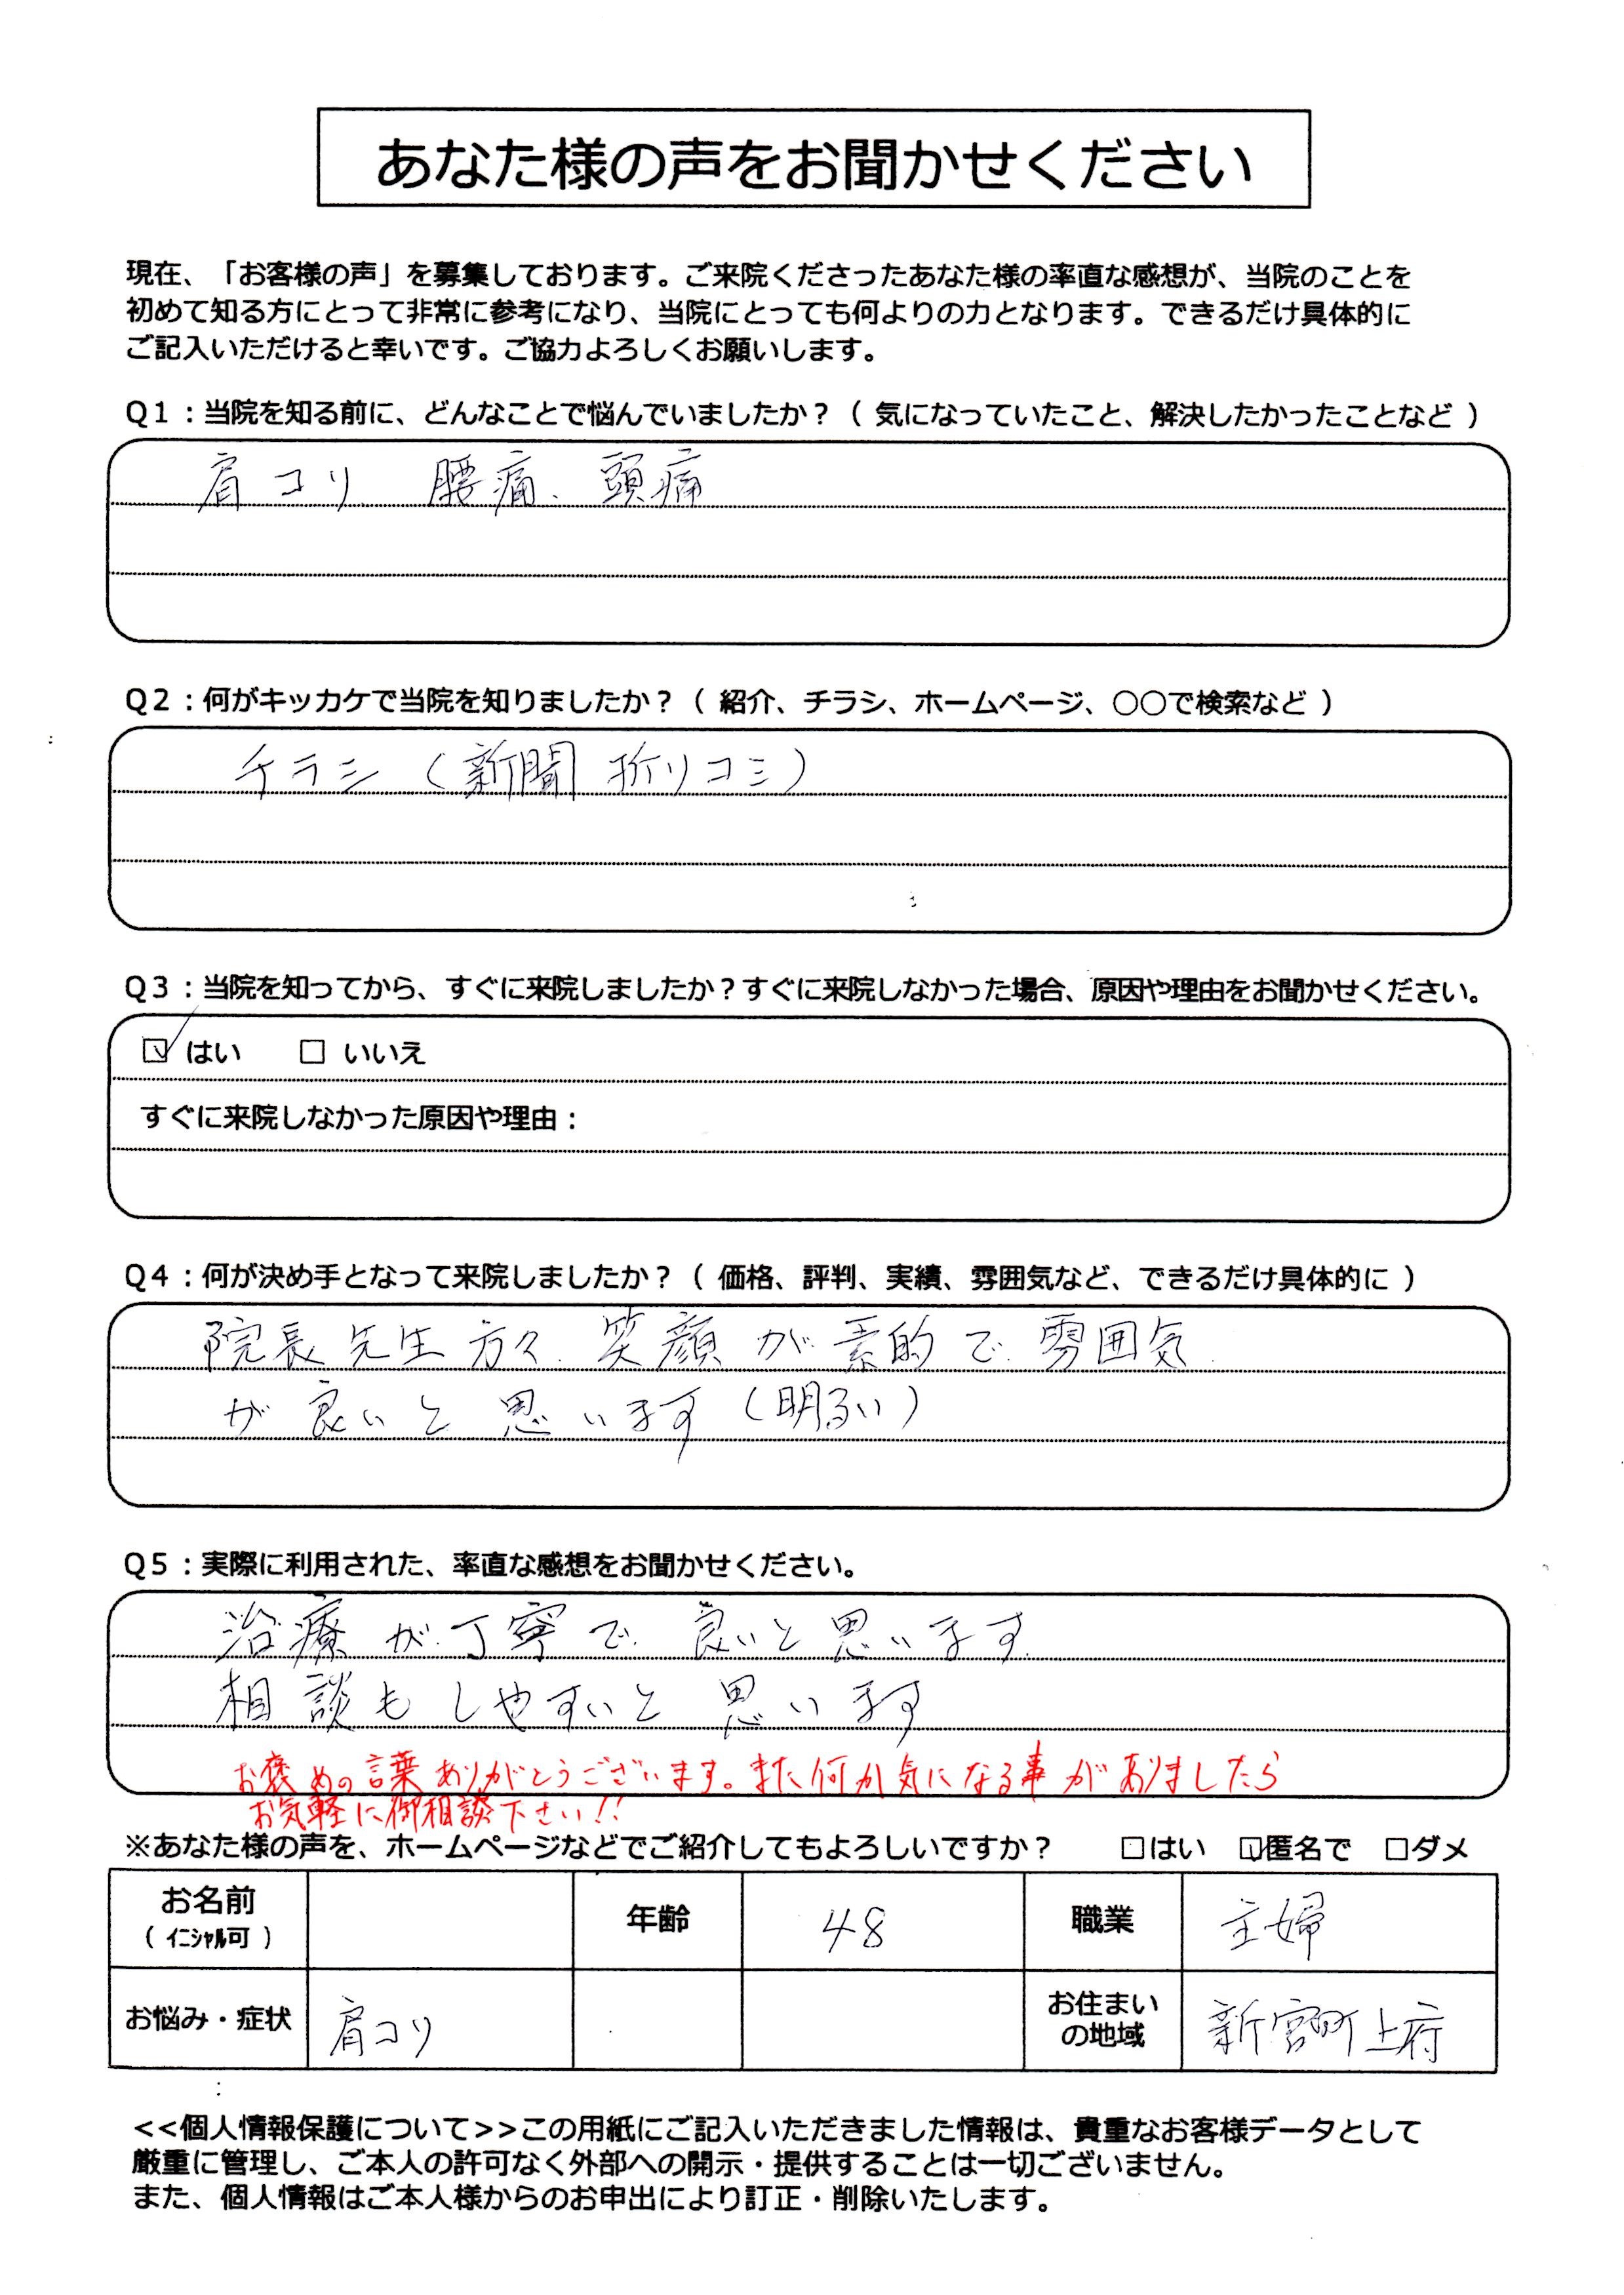 あなた様の声をお聞かせください
現在、「お客様の声」を募集しております。ご来院くださったあなた様の率直な感想が、当院のことを
初めて知る方にとって非常に参考になり、当院にとっても何よりの力となります。できるだけ具体的に
ご記入いただけると幸いです。ご協力よろしくお願いします。
Q1：当院を知る前に、どんなことで悩んでいましたか？（ 気になっていたこと、解決したかったことなど ）
肩コリ、腰痛、頭痛
Q2：何がキッカケで当院を知りましたか？（ 紹介、チラシ、ホームページ、○○で検索など ）
チラシ（新聞折りコミ）
Q3：当院を知ってから、すぐに来院しましたか？すぐに来院しなかった場合、原因や理由をお聞かせください。
☑ はい □ いいえ
すぐに来院しなかった原因や理由：
Q4：何が決め手となって来院しましたか？（ 価格、評判、実績、雰囲気など、できるだけ具体的に ）
院長先生方々、笑顔が素的で、雰囲気
が良いと思います（明るい）
Q5：実際に利用された、率直な感想をお聞かせください。
治療が丁寧で、良いと思います。
相談もしやすいと思います
お褒めの言葉ありがとうございます。また何か気になる事がありましたら
お気軽に御相談下さい!!
※あなた様の声を、ホームページなどでご紹介してもよろしいですか？ □はい ☑匿名で □ダメ
お名前 年齢 48 職業 主婦
（ ｲﾆｼｬﾙ可 ）
お悩み・症状 肩コリ お住まいの地域 新宮町上府
<<個人情報保護について>>この用紙にご記入いただきました情報は、貴重なお客様データとして
厳重に管理し、ご本人の許可なく外部への開示・提供することは一切ございません。
また、個人情報はご本人様からのお申出により訂正・削除いたします。